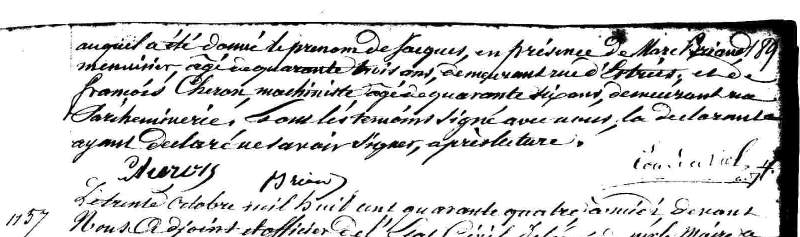 auquel a été donné le prénom de Jacques, en présence de Marc Briand 189
menuisier, agé de quarante trois ans, demeurant rue d'Estrées, et de
françois Cheron, machiniste agé de quarante six ans, demeurant rue
Parcheminerie. tous les témoins signé avec nous, la déclarante
ayant déclaré ne savoir signer, après lecture.
Cheron Briand
1157 Le trente octobre mil huit cent quarante quatre à midi, devant
Nous Adjoint et officier de l'Etat Civil délégué de M. le Maire